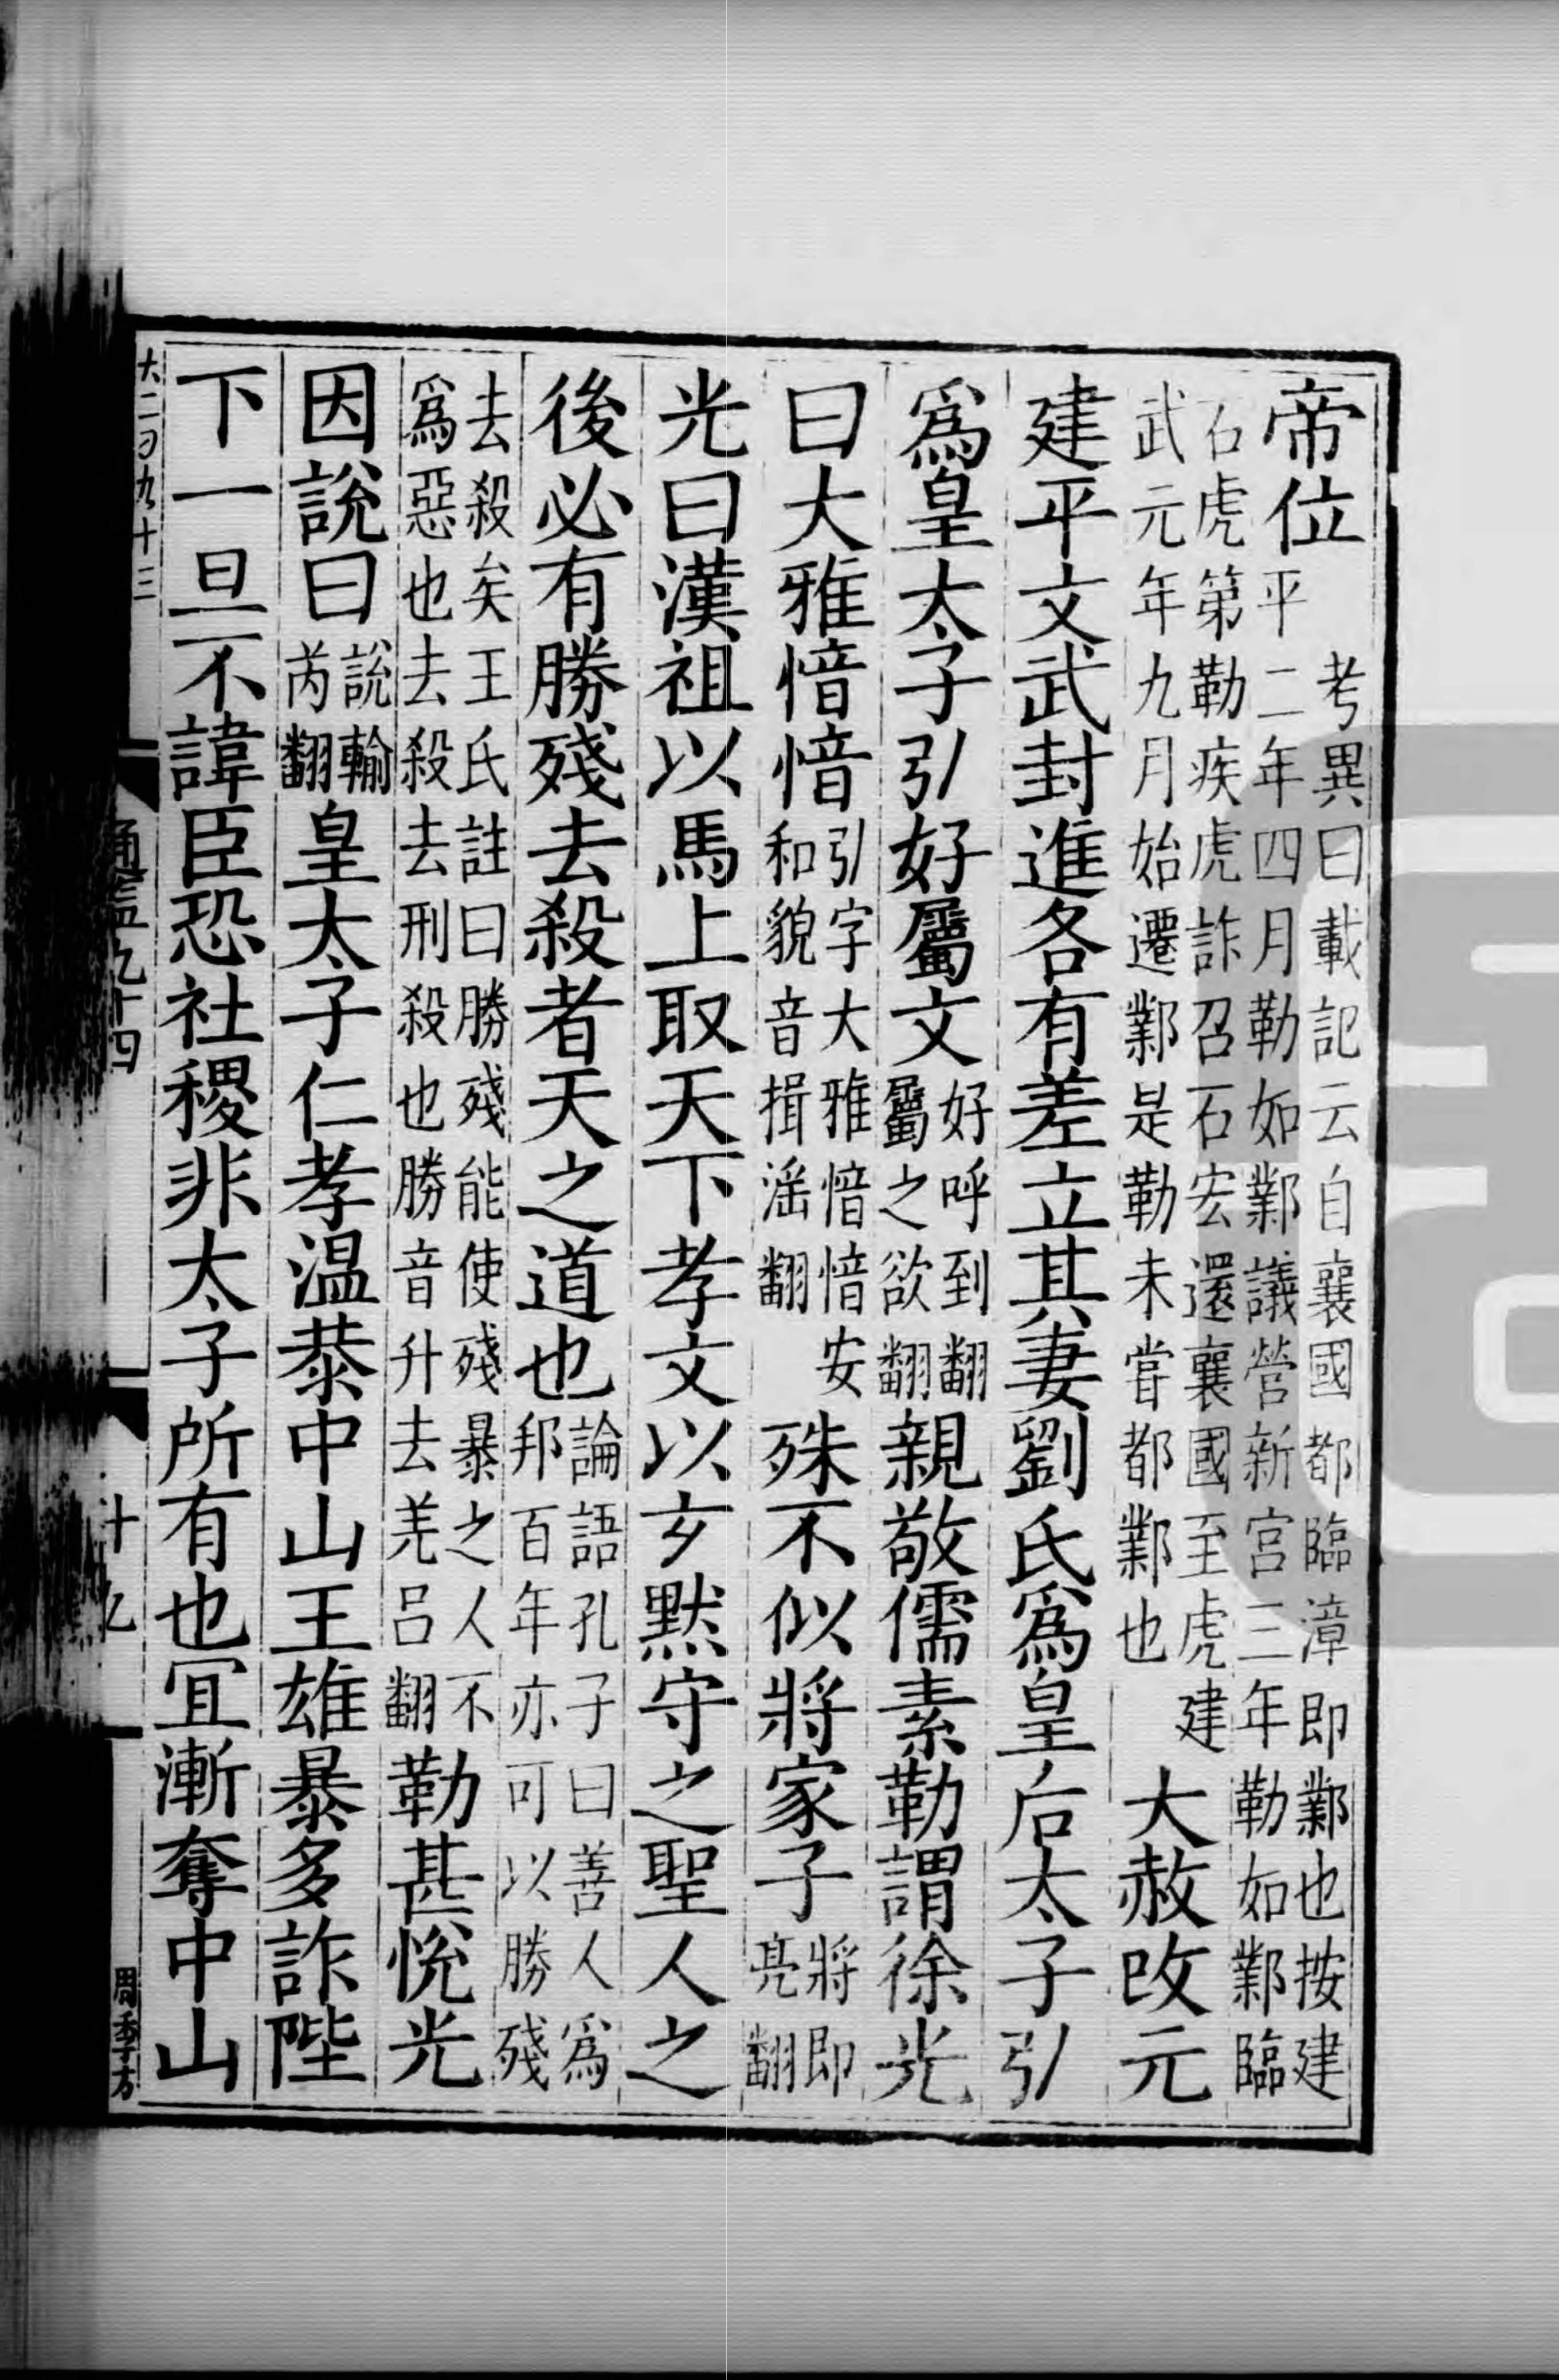 帝位考異曰載記云自襄國都臨漳即鄴也按建平二年四月勒如鄴議營新宮三年勒如鄴臨
石虎第勒疾虎詐召石宏還襄國至虎建武元年九月始遷鄴是勒未嘗都鄴也大赦改元
建平文武封進各有差立其妻劉氏爲皇后太子引
爲皇太子引好屬文好呼到翻屬之欲翻親敬儒素勒謂徐光
曰大雅愔愔引字大雅愔愔安和貌音揖滛翻殊不似將家子將即亮翻
光曰漢祖以馬上取天下孝文以玄默守之聖人之
後必有勝殘去殺者天之道也論語孔子曰善人爲邦百年亦可以勝殘
去殺矣王氏註曰勝殘能使殘暴之人不爲惡也去殺去刑殺也勝音升去羌呂翻勒甚悅光
因說曰說輸芮翻皇太子仁孝溫恭中山王雄暴多詐陛
下一旦不諱臣恐社稷非太子所有也宜漸奪中山
九十三
九十四
周季方